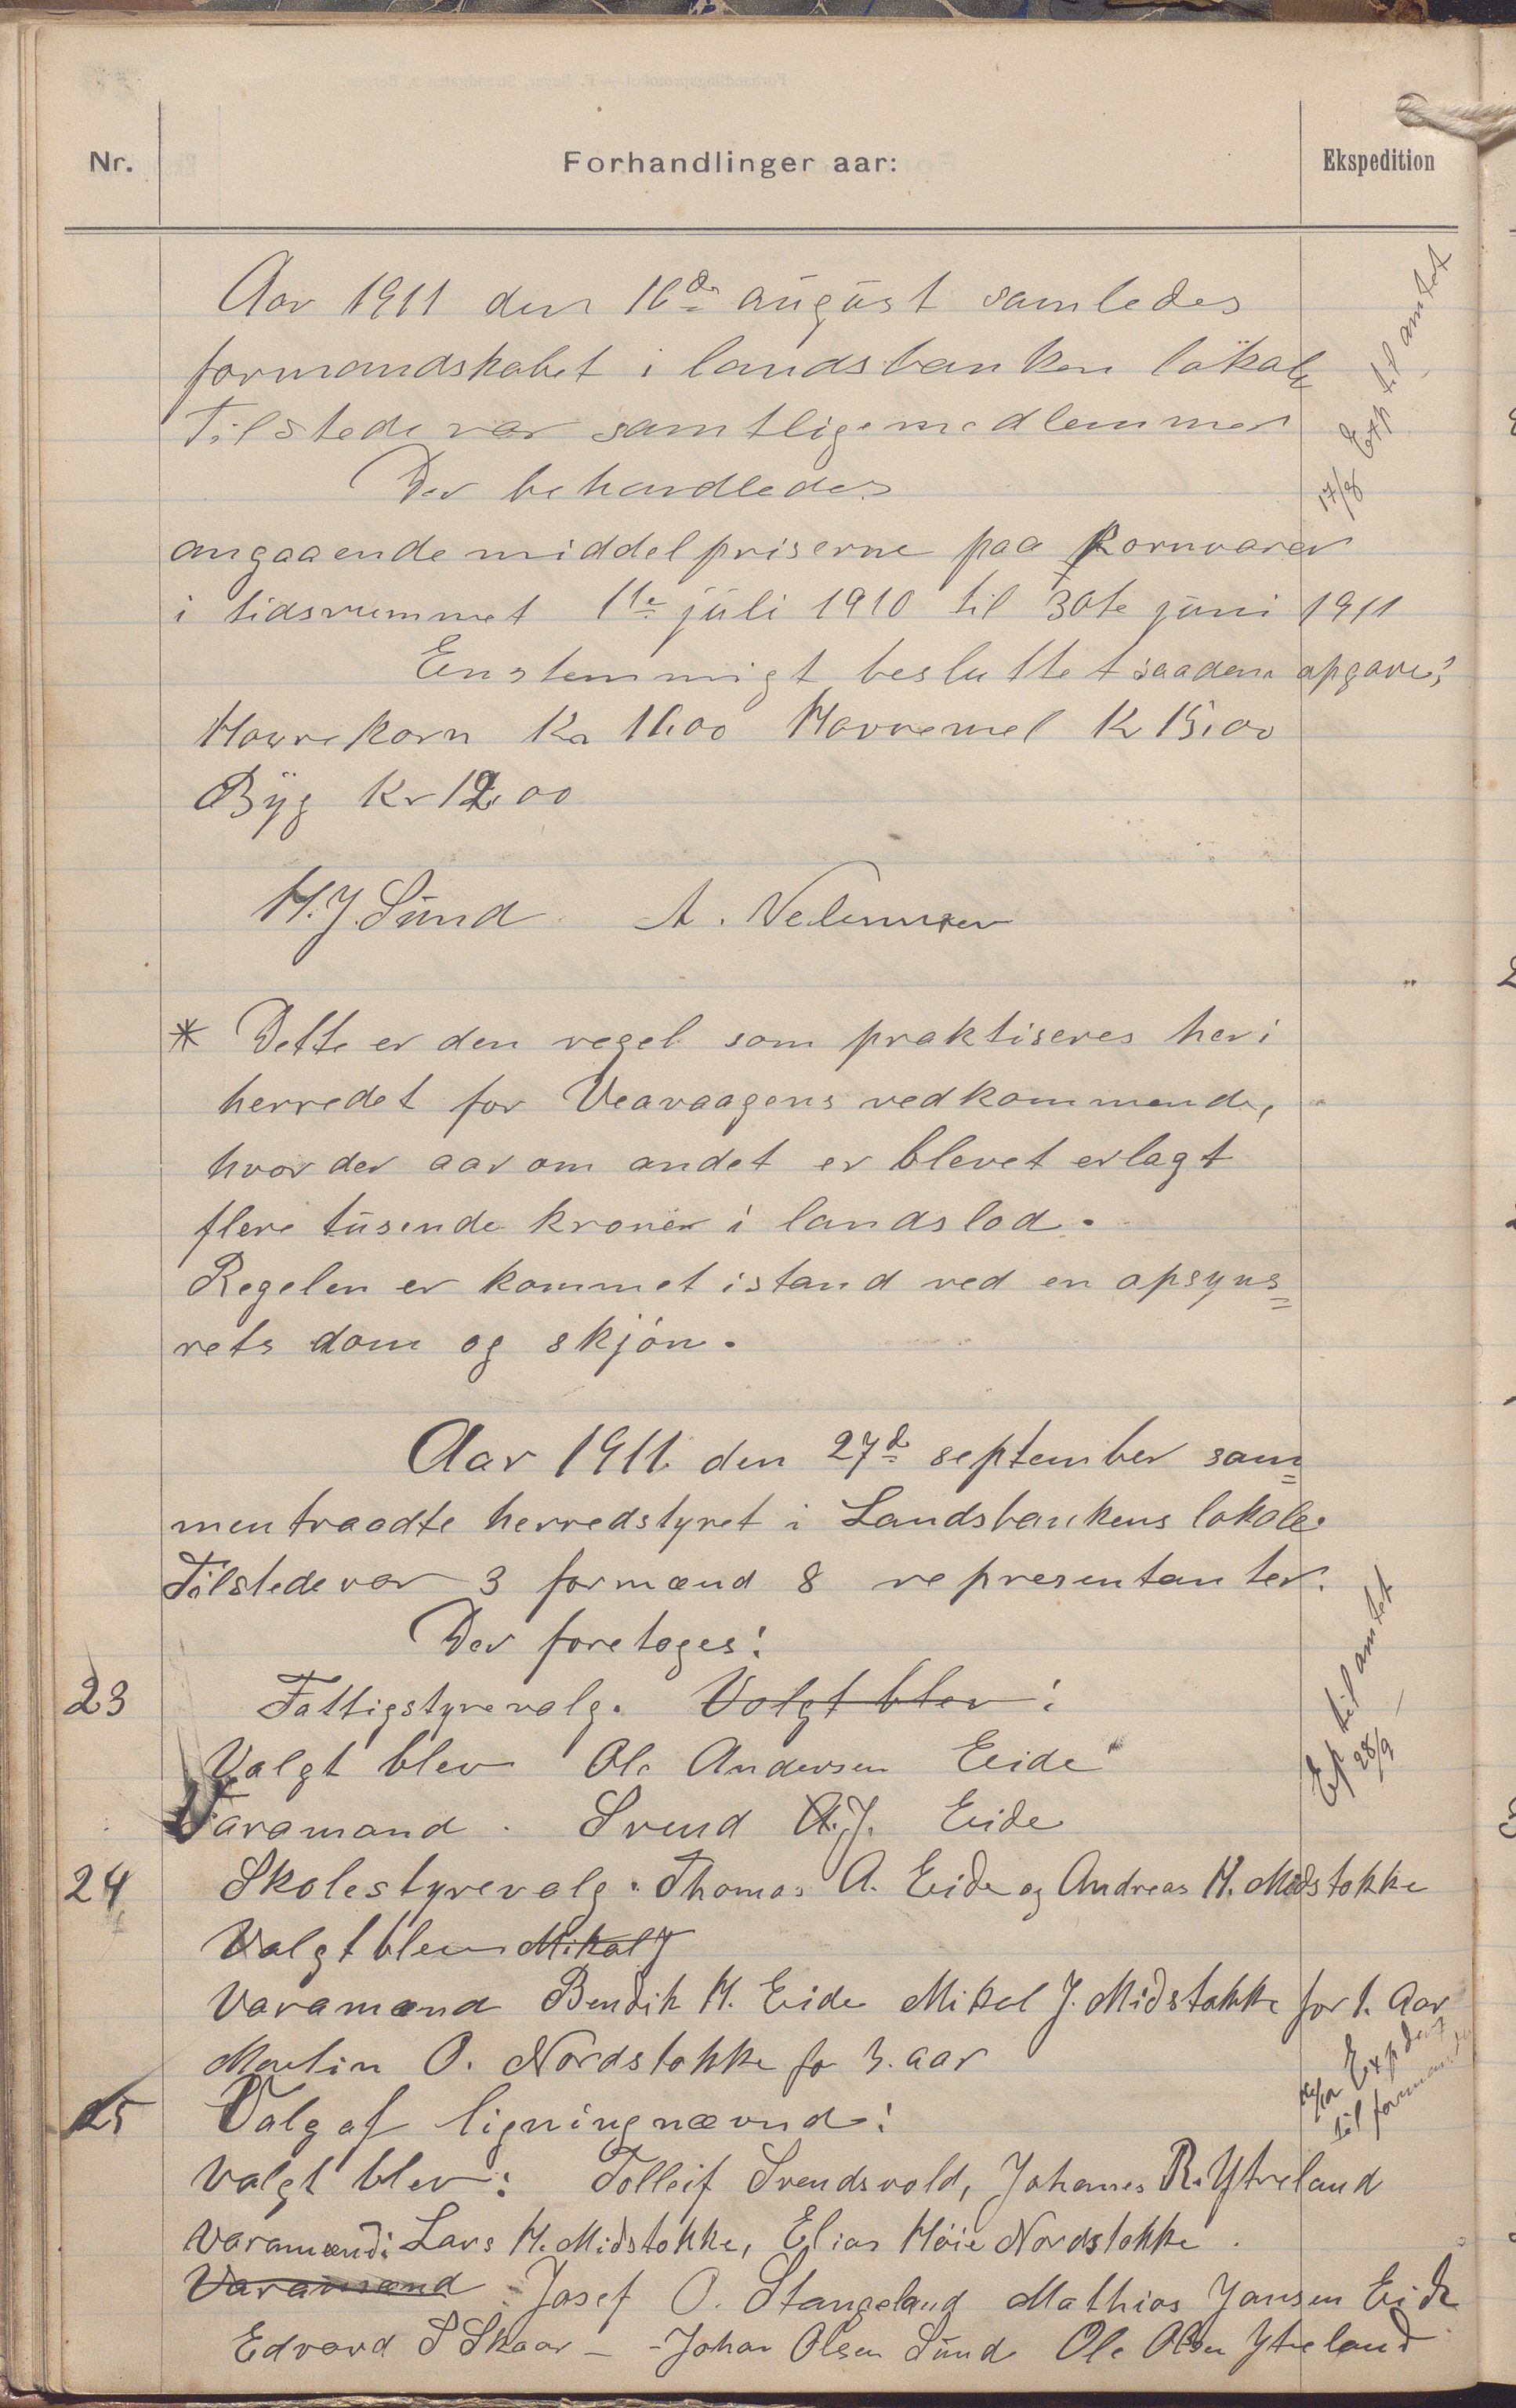 Nr.
Forhandlinger aar:
Ekspedition
Aar 1911 den 16de august samledes
formandskabet i landsbanken lokale
Tilstede var samtlige medlemmer
Der behandledes
17/8 Exp til amtet
angaaende middelpriserne paa kornvarer
i tidsrummet 1te juli 1910 til 30te juni 1911
Enstemmigt besluttet saadan opgave:
Havrekorn Kr 11.00 Havremel Kr 15.00
Byg Kr 12.00
H. J. Sund A.
* Dette er den regel som praktiseres her i
herredet for Veavaagens vedkommende,
hvor der aar om andet er blevet erlagt
flere tusinde kroner i landslod.
Regelen er kommet istand ved en opsyns=
rets dom og skjøn.
Aar 1911 den 27de september sam=
mentraadte herredstyret i Landsbankens lokale
Tilstede var 3 formænd 8 representanter.
Der foretoges:
23 Fattigstyrevalg. Valgt blev:
Valgt blev Ole Andersen Eide
Varamand. Svend A. J. Eide
Exp til amtet
28/9
24 Skolestyrevalg. Thomas A. Eide og Andreas H. Midstokke
Valgt blev Mikal J
Varamænd Bendik H. Eide Mikel J. Midstokke for 1. Aar
Martin O. Nordstokke for 3. aar
25 Valg af ligningnævnd:
Exp
til formand
Valgt blev: Tolleif Svendsvold, Johannes R. Ytreland
Varamænd: Lars H. Midstokke, Elias Høie Nordstokke.
Varamænd Josef O. Stangeland Mathias Jansen Eide
Edvard S Skaar - - Johan Olsen Sund Ole Olsen Ytreland